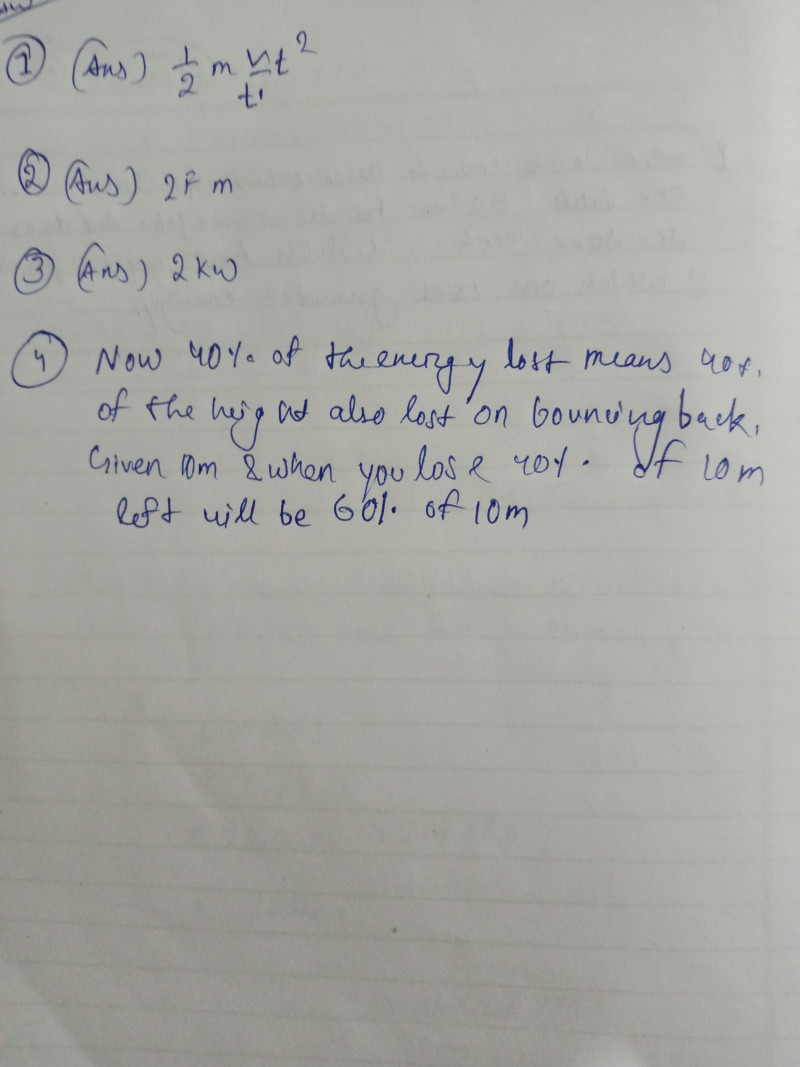 ① (Ans) 1/2 m v1/t1 t²
② (Ans) 2Fm
③ (Ans) 2kw
④ Now 40%. of the energy lost means 40%.
of the height also lost on bouncing back,
Given 10m & when you lose 40%. of 10m
left will be 60%. of 10m